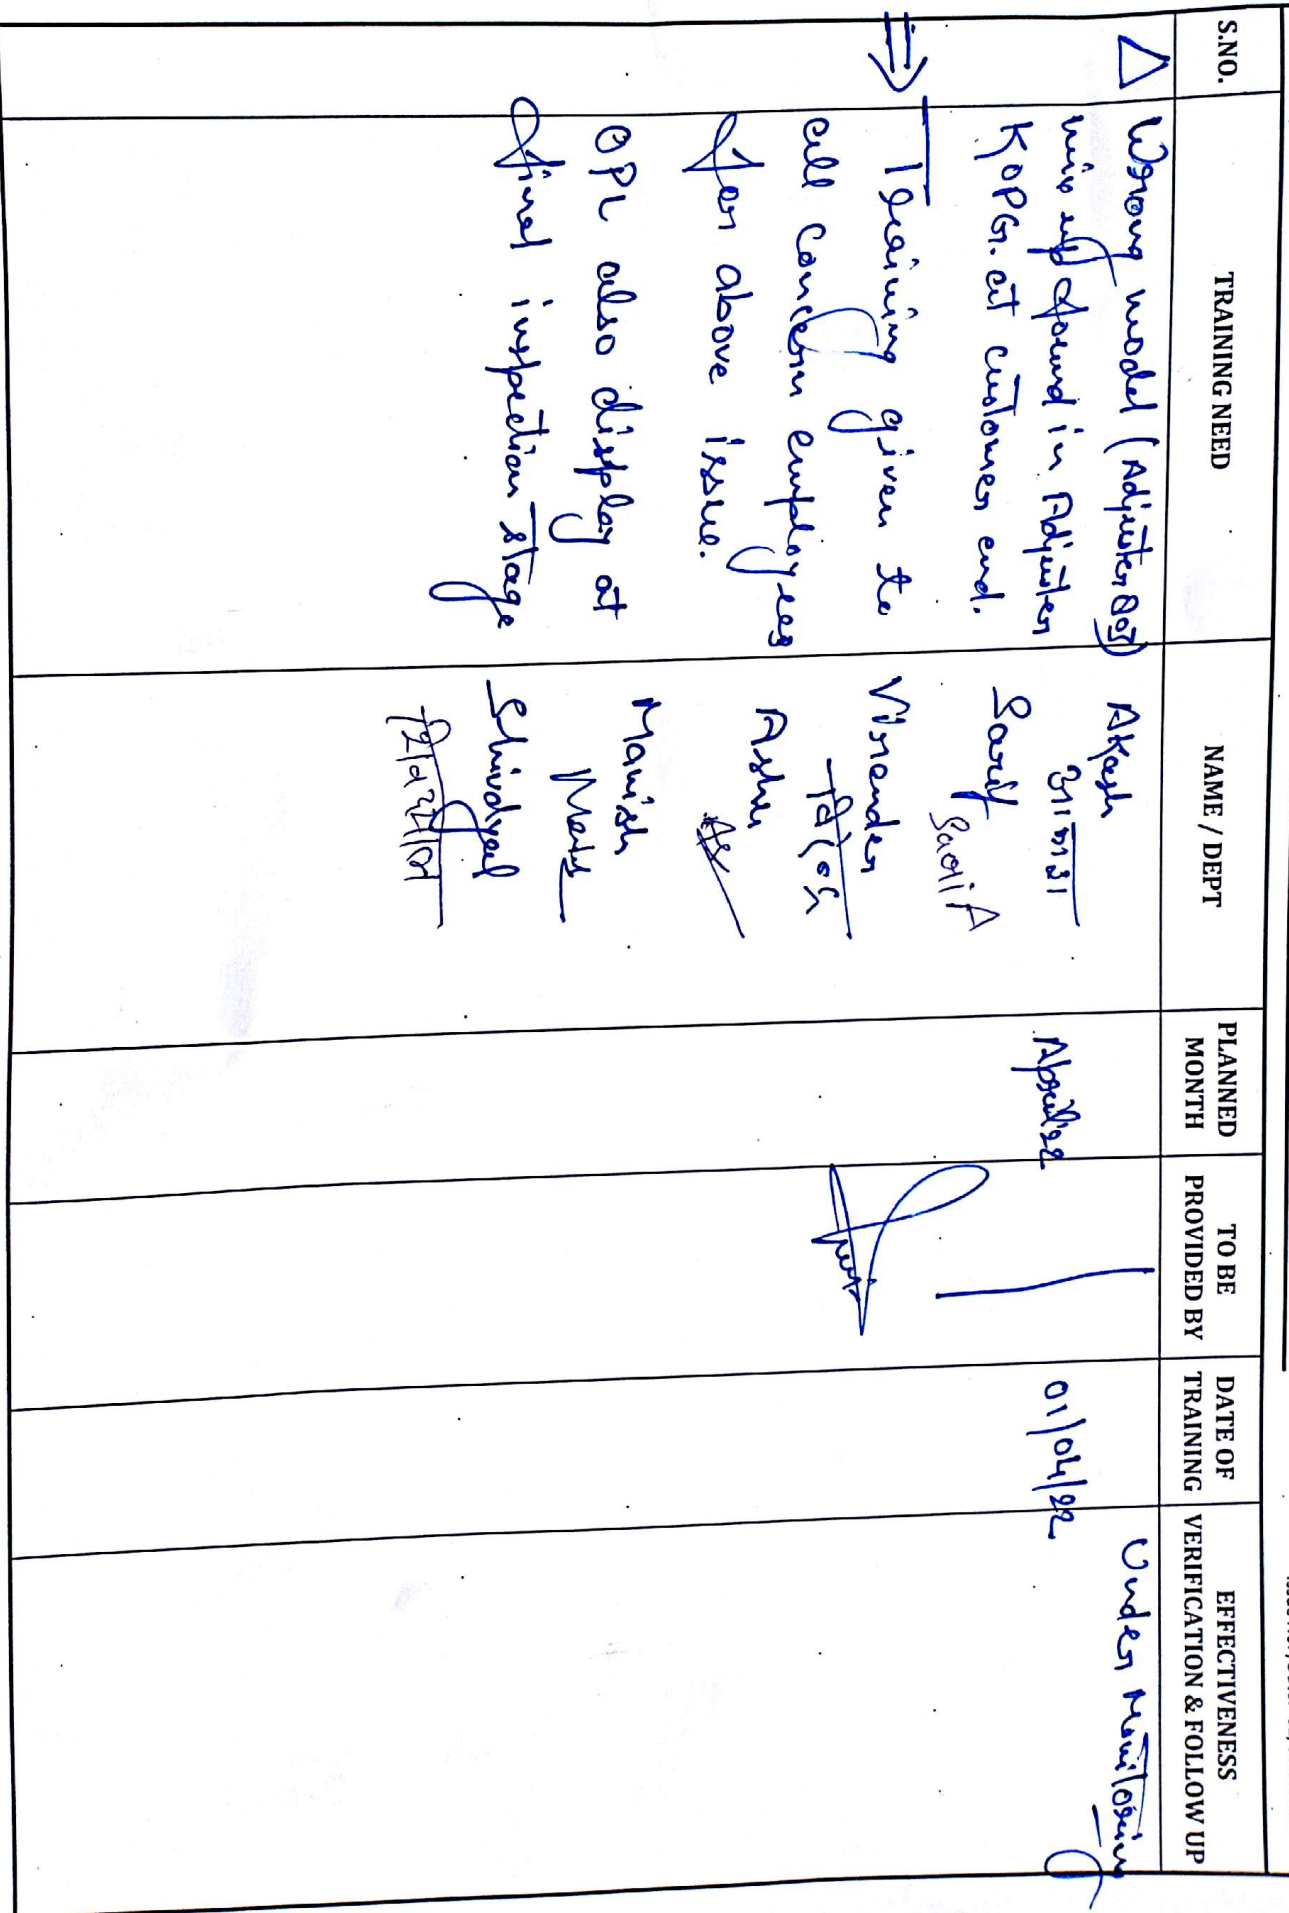 S.NO.
TRAINING NEED
NAME / DEPT
PLANNED
MONTH
TO BE
PROVIDED BY
DATE OF
TRAINING
EFFECTIVENESS
VERIFICATION & FOLLOW UP
Wrong model (Adjuster
mix up found in Adjuster
KOPG. at customer end.
⇒ Training given to
all concern employees
for above issue.
OPL also display at
final inspection stage
Akash
आकाश
Sarif
Virender
Ashu
Manish
Shivdyal
April'22
01/04/22
Under Monitoring